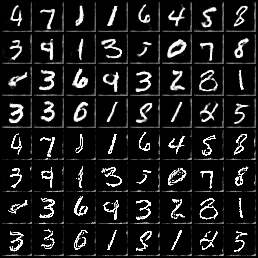 9 7 1 1 6 4 5 8
3 9 1 3 5 0 7 8
3 6 9 3 2 8 1
3 3 6 1 8 1 4 5
9 7 1 1 6 4 5 8
3 9 1 3 5 0 7 8
3 6 9 3 2 8 1
3 3 6 1 8 1 4 5